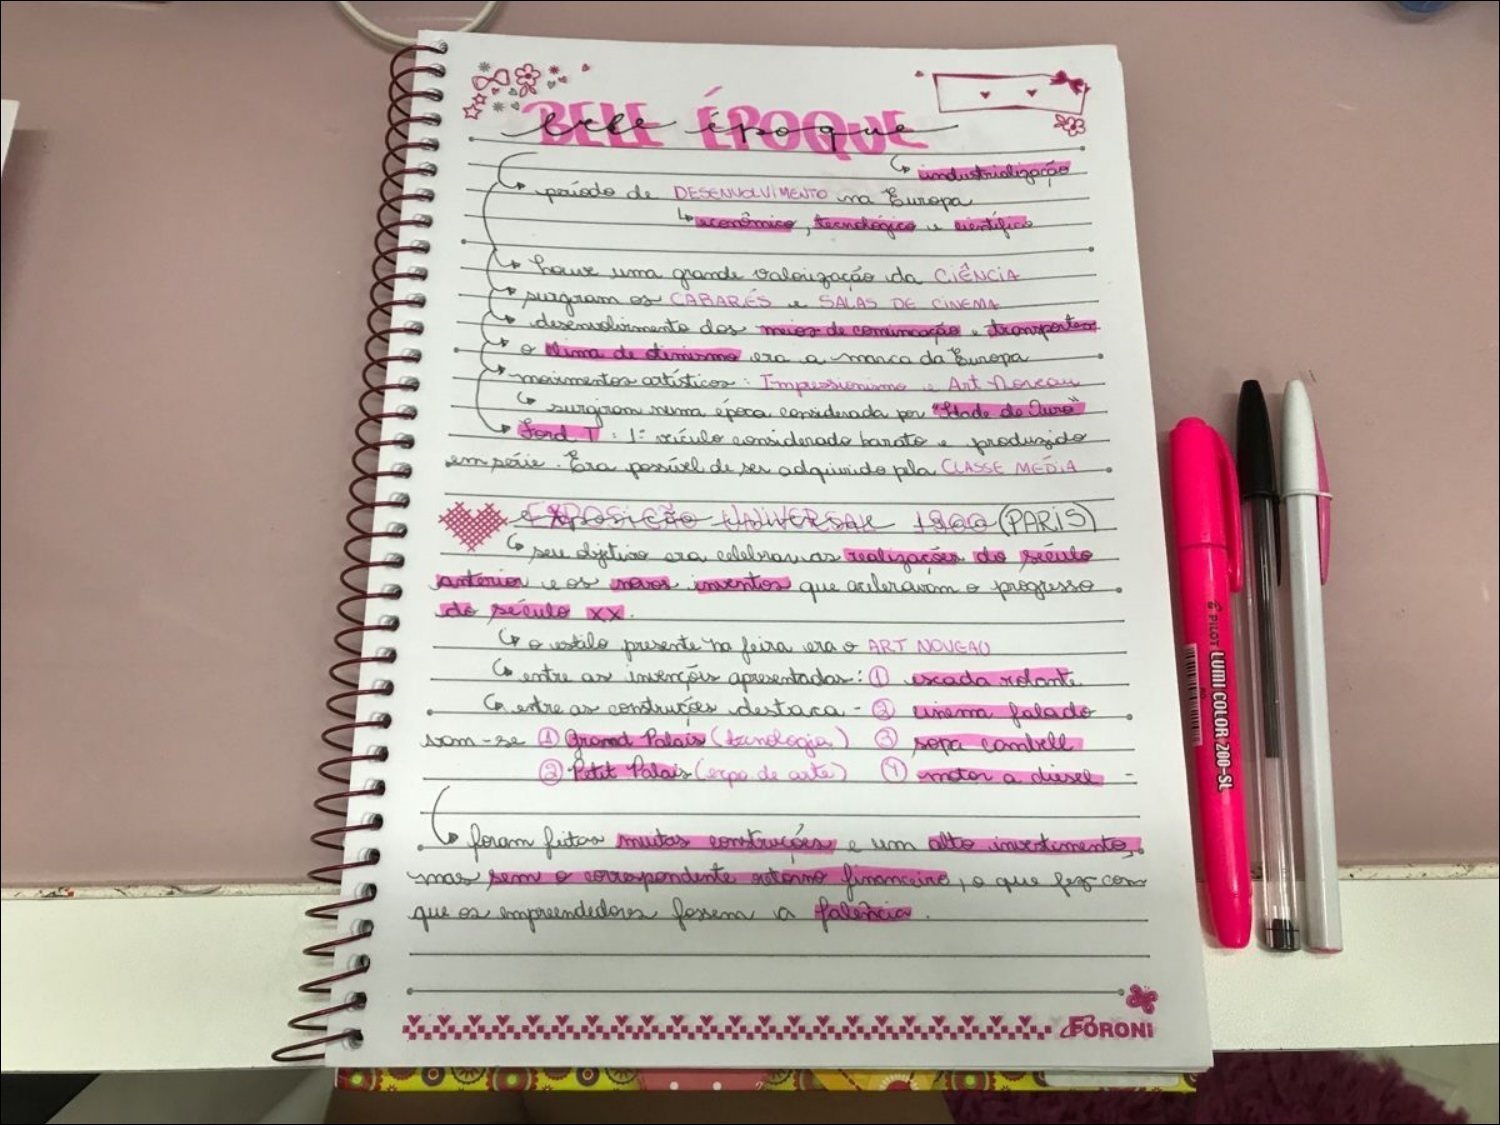 BELE ÉPOQUE
bele époque
↳ industrialização
↳ período de DESENVOLVIMENTO na Europa
↳ econômico, tecnológico e científico
↳ houve uma grande valorização da CIÊNCIA
↳ surgiram os CABARÉS e SALAS DE CINEMA
↳ desenvolvimento dos meios de comunicação e transportes
↳ o clima de otimismo era a marca da Europa
↳ movimentos artísticos: Impressionismo e Art Noveau
↳ surgiram numa época considerada por "Idade do Ouro"
↳ Ford T: 1º veículo considerado barato e produzido
em série. Era possível de ser adquirido pela CLASSE MÉDIA
EXPOSIÇÃO UNIVERSAL 1900 (PARIS)
↳ seu objetivo era celebrar as realizações do século
anterior e os novos inventos que aceleravam o progresso
do século XX.
↳ o estilo presente na feira era o ART NOVEAU
↳ entre as invenções apresentadas: ① escada rolante
↳ entre as construções destaca- ② cinema falado
vam-se ① Grand Palais (tecnologia) ③ sopa cambell
② Petit Palais (expo de arte) ④ motor a diesel
↳ foram feitas muitas construções e um alto investimento,
mas sem o correspondente retorno financeiro, o que fez com
que os empreendedores fossem a falência.
FORONI
PILOT LUMI COLOR 200-SL